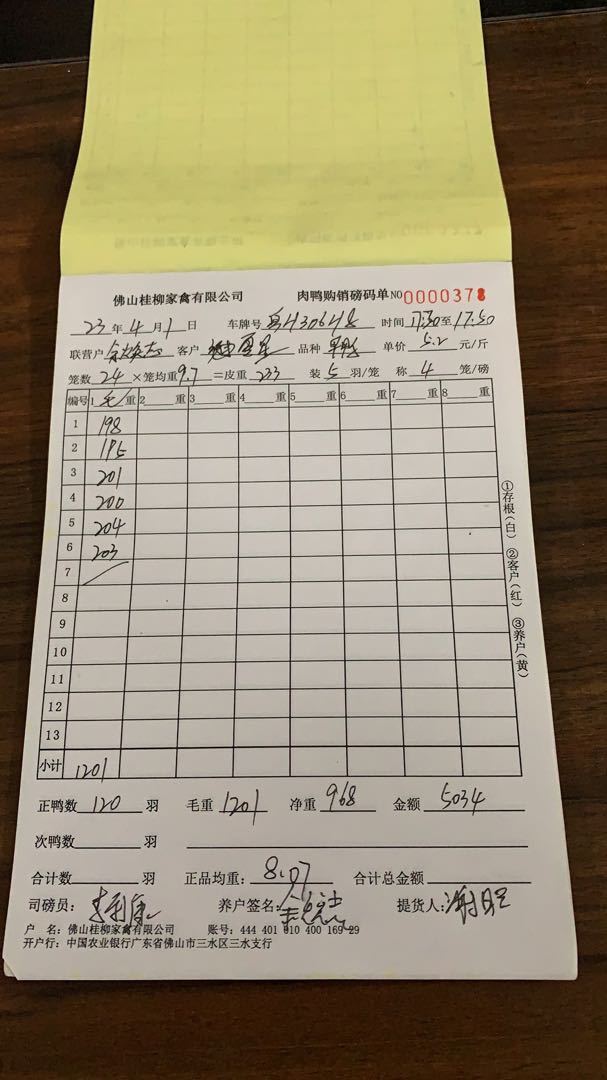 佛山桂柳家禽有限公司 肉鸭购销磅码单 NO 0000378
23年4月1日 车牌号 H30648 时间 17:30至17:50
联营户 客户 品种 单价 5.2 元/斤
笼数 24 ×笼均重 9.7 =皮重 233 装 5 羽/笼 称 4 笼/磅
编号 1 毛 重 2 重 3 重 4 重 5 重 6 重 7 重 8 重
1 198
2 195
3 201
4 200
5 204
6 203
7
8
9
10
11
12
13
小计 1201
正鸭数 120 羽 毛重 1201 净重 968 金额 5034
次鸭数 羽
合计数 羽 正品均重: 8.07 合计总金额
司磅员: 养户签名: 提货人:
户 名: 佛山桂柳家禽有限公司 账号: 444 401 010 400 169 29
开户行: 中国农业银行广东省佛山市三水区三水支行
①存根(白) ②客户(红) ③养户(黄)